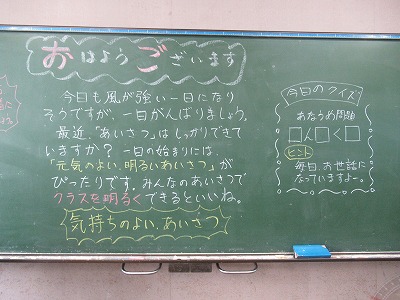 おはようございます
今日も風が強い一日になり
そうですが、一日がんばりましょう。
最近、「あいさつ」はしっかりできて
いますか？一日の始まりには、
「元気のよい、明るいあいさつ」が
ぴったりです。みんなのあいさつで
クラスを明るくできるといいね。
気持ちのよい、あいさつ
今日のクイズ
あなうめ問題
□ん□く□
ヒント
毎日、お世話に
なっていますよー。